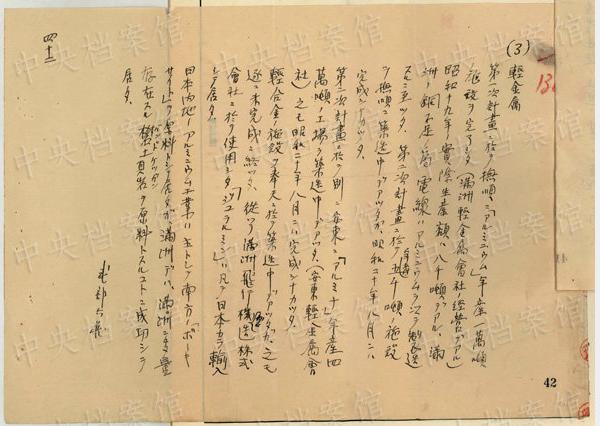 (3) 軽金属
第一次計畫ニ於テ撫順ニ「アルミニウム」年産一萬噸
ノ施設ヲ完了シタ(滿洲軽金属會社ノ経営デアル)
昭和十九年ノ實際生産額ハ八千噸デアル、滿
洲ノ銅不足ノ爲電線ハアルミニウムヲ以テ製造
スルニ至ツタ、第二次計畫ニ於テ年産五千噸ノ施設
ヲ撫順ニ築造中デアツタガ、昭和二十年八月ニハ
完成シナカツタ、
第二次計畫ニ於テ別ニ安東ニ「アルミナ」年産四
萬噸ノ工場ヲ築造中デアツタ、(安東軽金属會
社)之モ昭和二十年八月ニハ完成シナカツタ、
軽合金ノ施設ヲ奉天ニ於テ築造中デアツタガ、之モ
遂ニ未完成ニ終ツタ、従ツテ滿洲飛行機製造株式
會社ニ於テ使用シタ「ジユラルミン」ハ凡テ日本カラ輸入
シテ居タ、
日本内地ノ「アルミニウム」工業ハ主トシテ南方ノ「ボーキ
サイト」ヲ原料トシテ居タガ滿洲デハ、滿洲ニ多量
存在スル礬土頁岩ヲ原料トスルコトニ成功シテ
居タ、
武部六蔵
四十二
42
中央档案馆